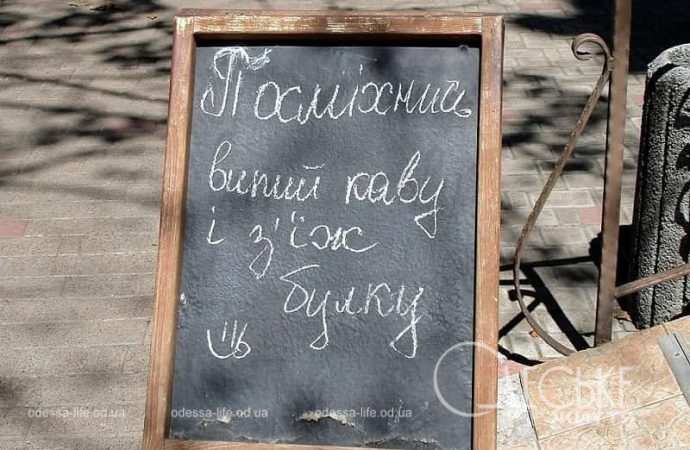 Посміхнись
випий каву
і з'їж
булку
ОДЕСЬКЕ
ЖИТТЯ
odessa-life.od.ua odessa-life.od.ua odessa-life.od.ua